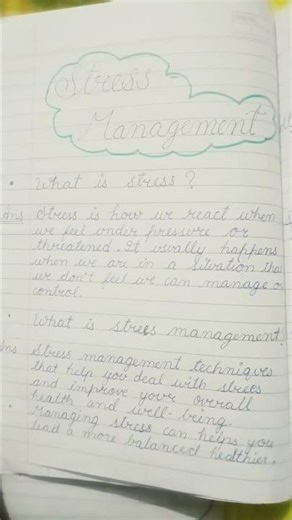 Stress
Management
• What is stress?
Ans Stress is how we react when
we feel under pressure or
threatened. It usually happens
when we are in a situation that
we don't feel we can manage or
control.
• What is stress management.
Ans Stress management techniques
that help you deal with stress
and improve your overall
health and well-being.
Managing stress can helps you
lead a more balanced healthier.